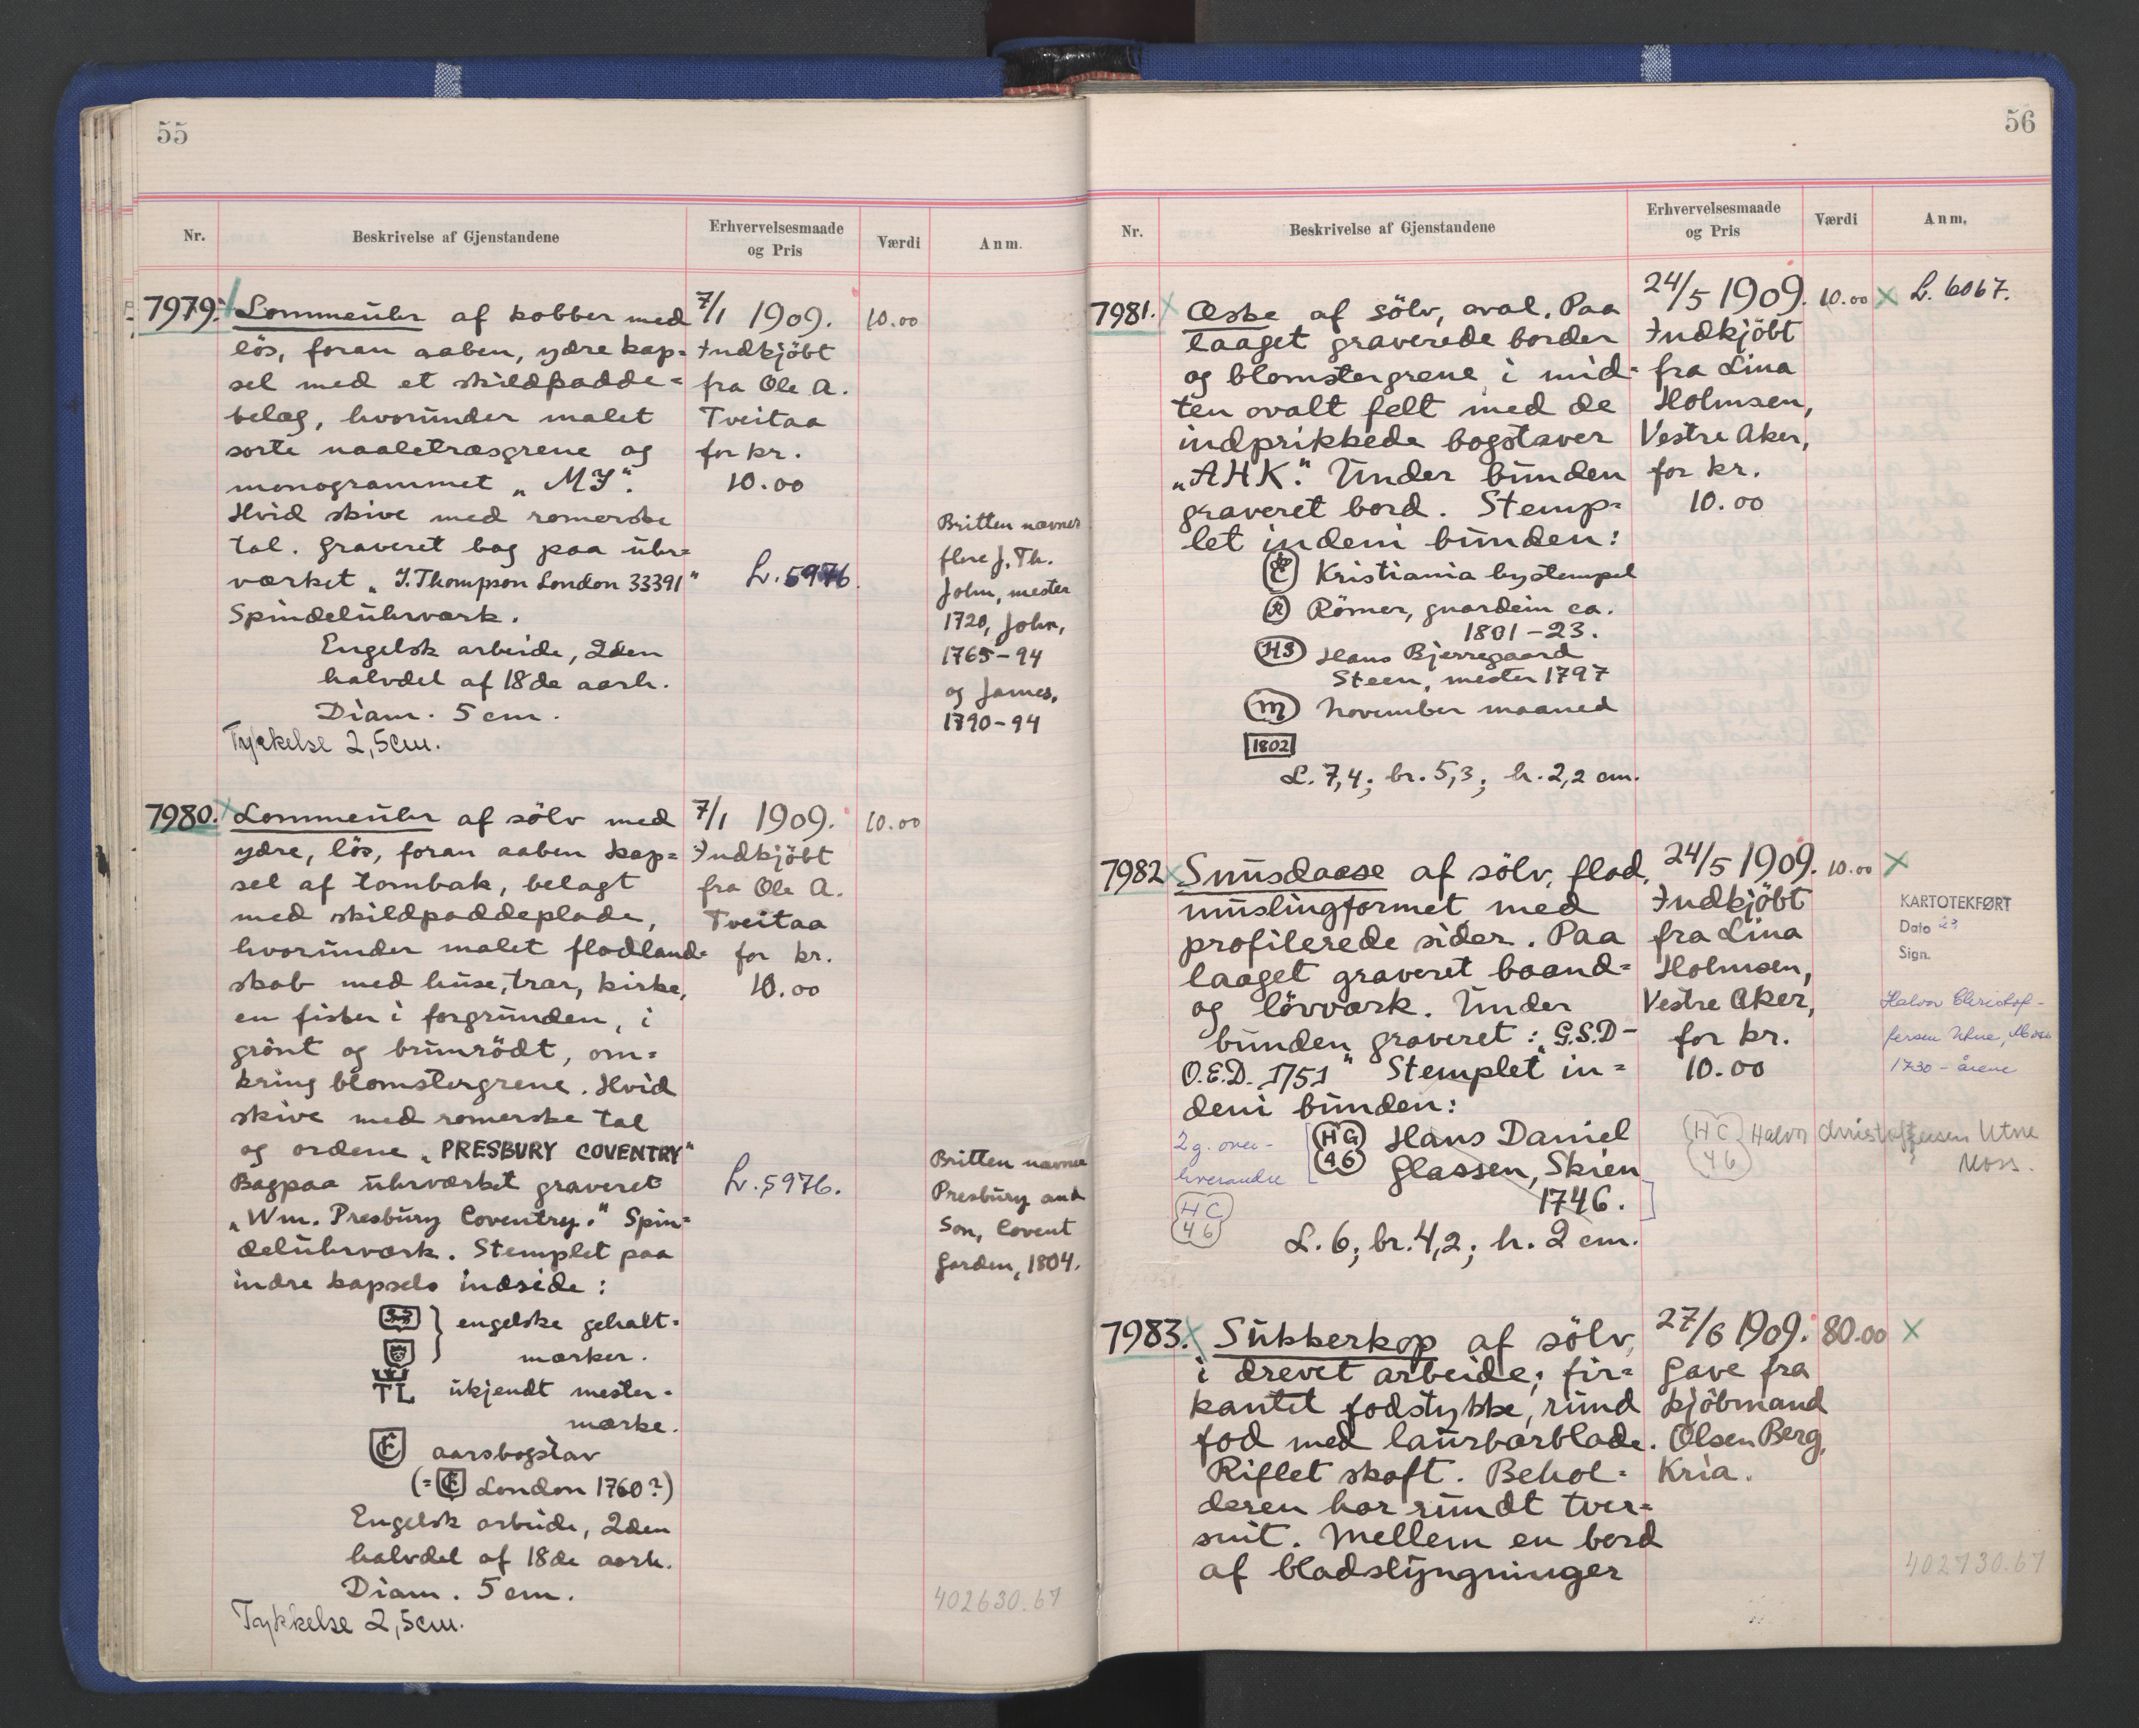 55
Nr.
Beskrivelse af Gjenstandene
Erhvervelsesmaade
og Pris
Værdi
Anm.
7979.
Lommeuhr af kobber med
lös, foran aaben, ydre kap=
sel med et skildpadde=
belæg, hvorunder malet
sorte naaletræsgrene og
monogrammet „MJ".
Hvid skive med romerske
tal. Graveret bag paa uhr=
værket „J. Thompson London 33391"
Spindeluhrværk.
Engelsk arbeide, 2den
halvdel af 18de aarh.
Diam. 5 cm.
Tykkelse 2,5cm.
7/1 1909.
Indkjöbt
fra Ole A.
Tveitaa
for kr.
10.00
L. 5976.
10.00
Britten nævner
flere J. Th.
John, mester
1720, John,
1765-94
og James,
1790-94
7980.
Lommeuhr af sölv med
ydre, lös, foran aaben kap=
sel af tombak, belagt
med skildpaddeplade,
hvorunder malet flodland=
skab med huse, trær, kirke,
en fisker i forgrunden, i
grönt og brunrödt, om=
kring blomstergrene. Hvid
skive med romerske tal
og ordene „PRESBURY COVENTRY"
Bagpaa uhrværket graveret
„Wm. Presbury Coventry." Spin=
deluhrværk. Stemplet paa
indre kapsels indside:
engelske gehalt=
mærker.
TL ukjendt mester=
mærke.
E aarsbogstav
(= E London 1760?)
Engelsk arbeide, 2den
halvdel af 18de aarh.
Diam. 5 cm.
Tykkelse 2,5cm.
7/1 1909.
Indkjöbt
fra Ole A.
Tveitaa
for kr.
10.00
L. 5976.
10.00
Britten nævner
Presbury and
Son, Covent
Garden, 1804.
402630.67
56
Nr.
Beskrivelse af Gjenstandene
Erhvervelsesmaade
og Pris
Værdi
Anm.
7981.
Æske af sölv, oval. Paa
laaget graverede border
og blomstergrene, i mid=
ten ovalt felt med de
indprikkede bogstaver
„AHK". Under bunden
graveret bord. Stemp=
let indeni bunden:
C Kristiania bystempel
R Römer, guardein ca.
1801-23.
HS Hans Bjerregaard
Steen, mester 1797
m November maaned
1802
L. 7,4; br. 5,3; h. 2,2 cm.
24/5 1909.
Indkjöbt
fra Lina
Holmsen,
Vestre Aker,
for kr.
10.00
10.00
L. 6067.
7982
Snusdaase af sölv, flad,
muslingformet med
profilerede sider. Paa
laaget graveret baand=
og lövværk. Under
bunden graveret: „G.S.D-
O.E.D. 1751" Stemplet in=
deni bunden:
2 g. over
hverandre
HG
46
Hans Daniel
Glassen, Skien
1746.
HC
46
L. 6; br. 4,2; h. 2 cm.
24/5 1909.
Indkjöbt
fra Lina
Holmsen,
Vestre Aker,
for kr.
10.00
10.00
KARTOTEKFØRT
Dato
Sign.
Halvor Christof-
fersen Utne, Moss
1730-årene
HC
46
Halvor Christoffersen Utne
Moss.
7983.
Sukkerkop af sölv,
i drevet arbeide; fir=
kantet fodstykke, rund
fod med laurbærblade.
Riflet skaft. Behol=
deren har rundt tver=
snit. Mellem en bord
af bladslyngninger
27/6 1909.
Gave fra
kjöbmand
Olsen Berg,
Kria.
80.00
402730.67